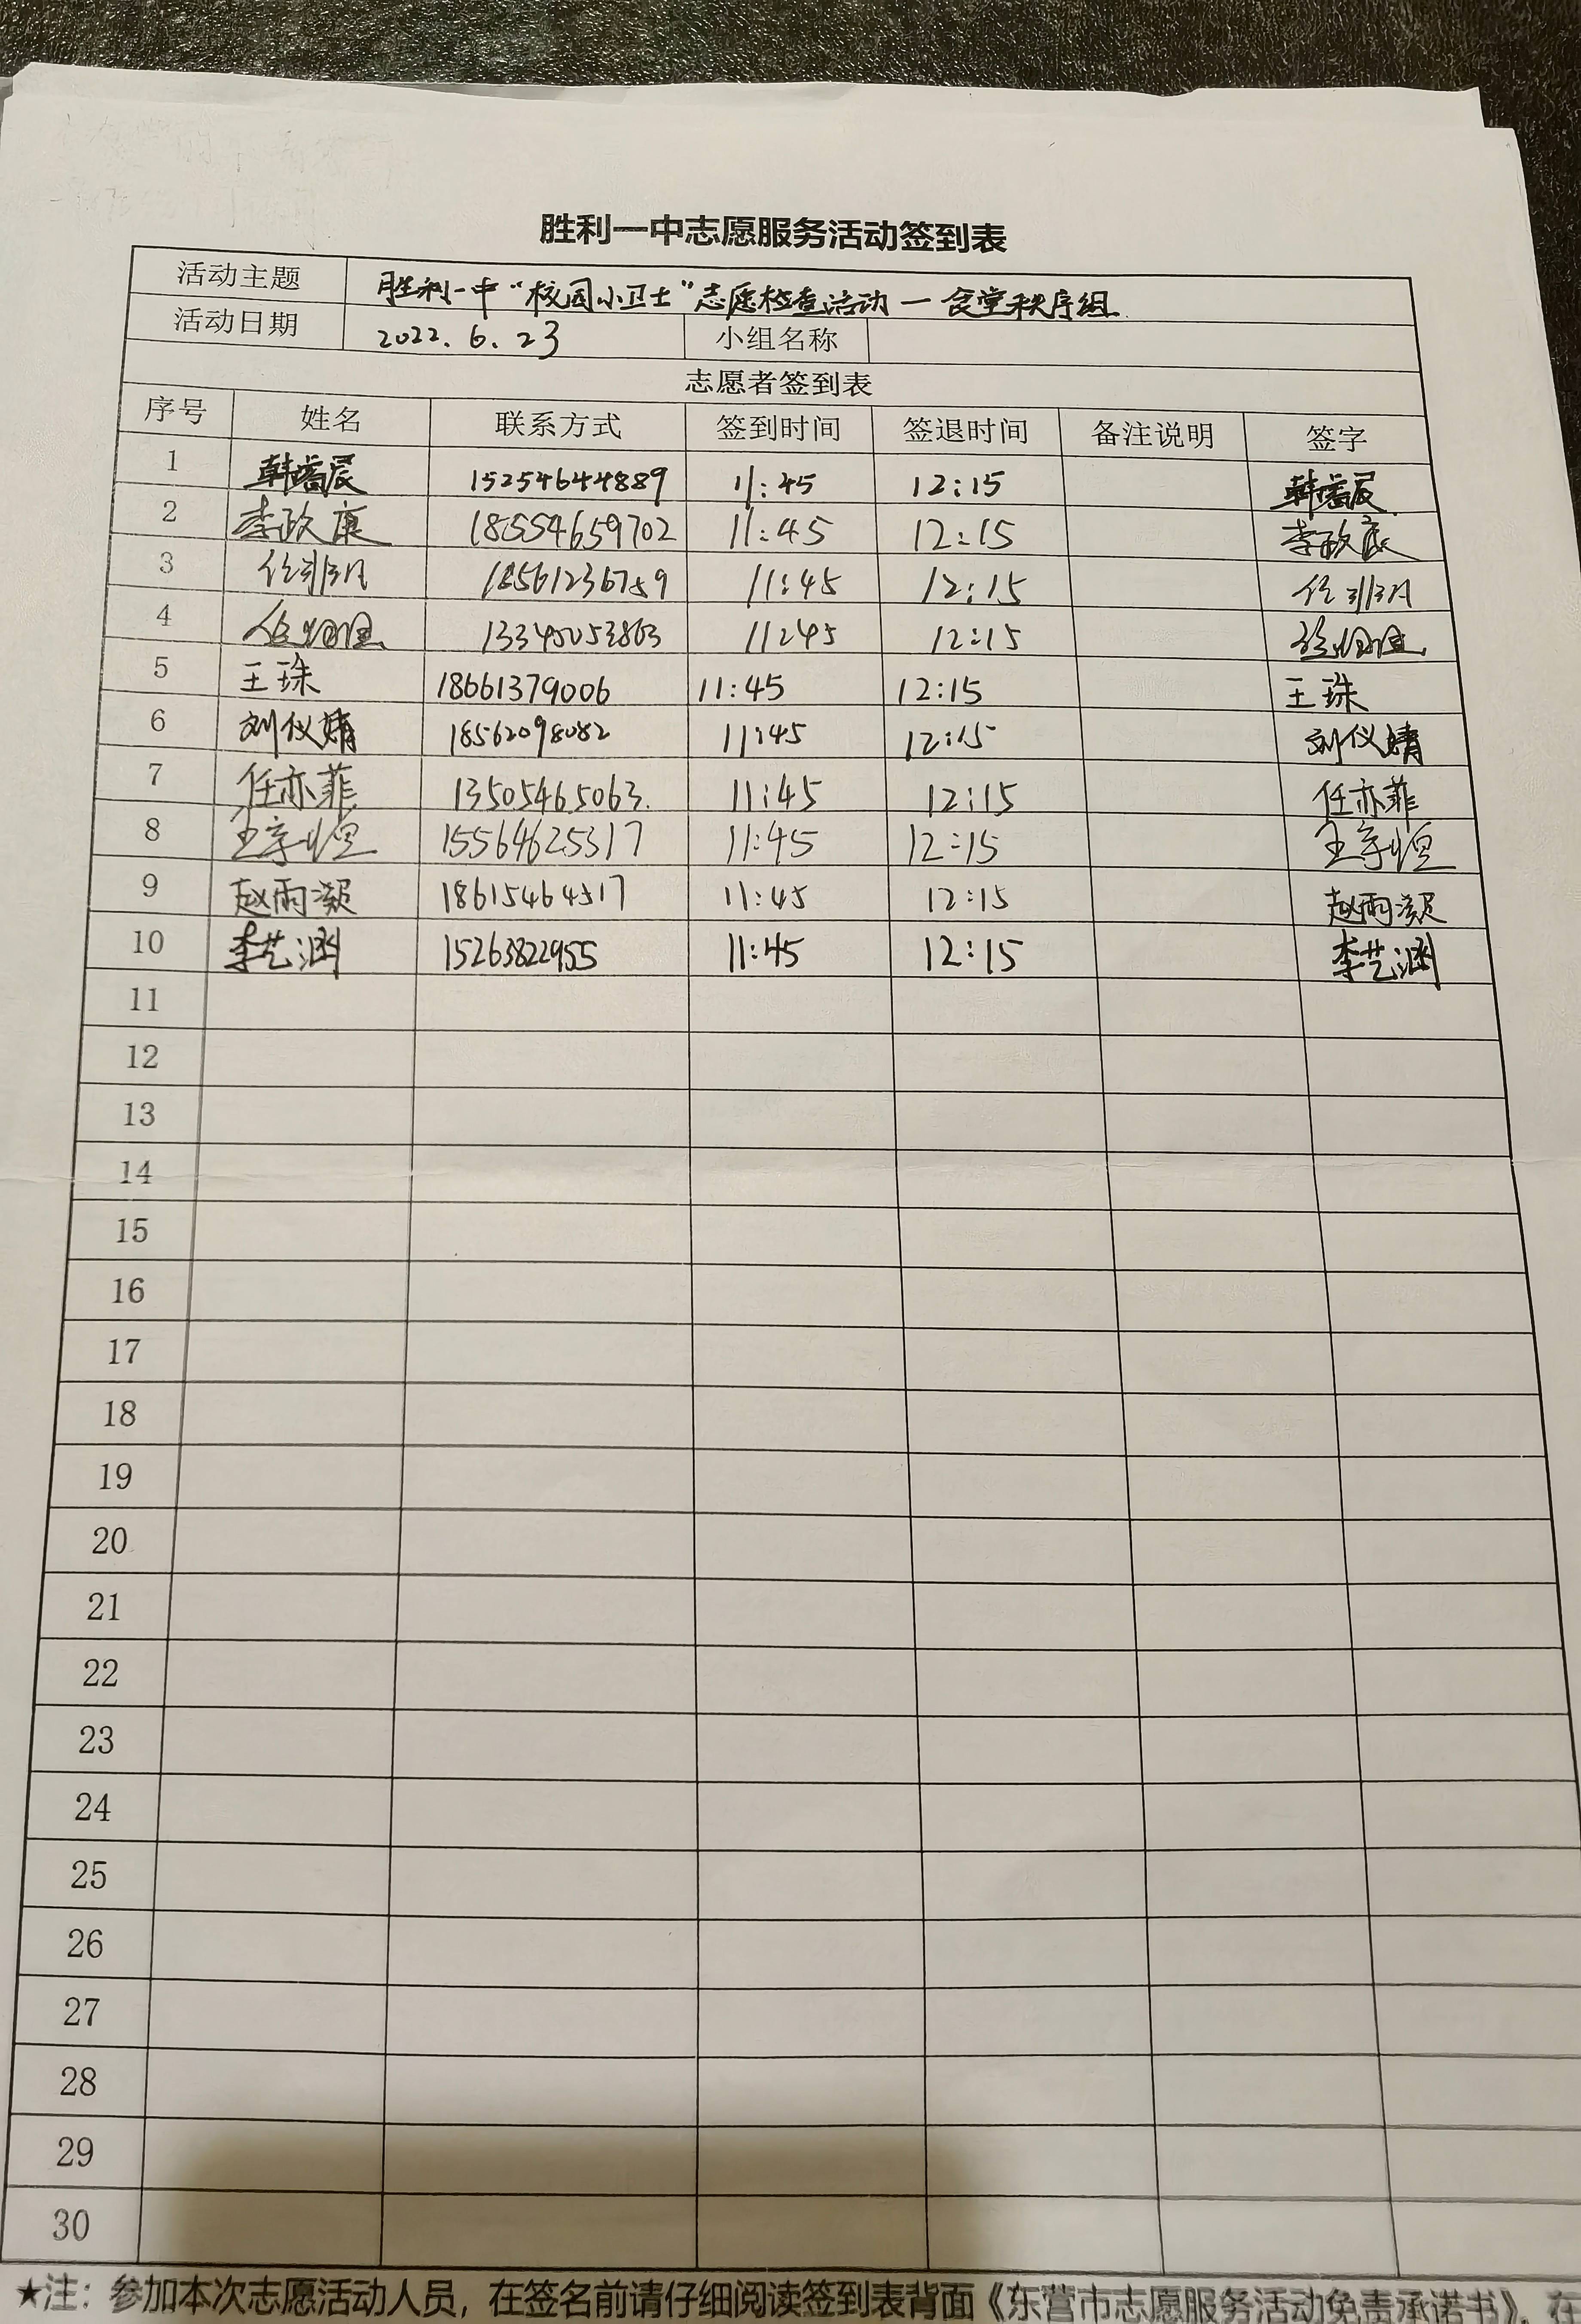 胜利一中志愿服务活动签到表
活动主题 胜利一中“校园小卫士”志愿检查活动—食堂秩序组
活动日期 2022.6.23 小组名称
志愿者签到表
序号 姓名 联系方式 签到时间 签退时间 备注说明 签字
1 韩睿辰 15254644889 11:45 12:15 韩睿辰
2 李政康 18554659702 11:45 12:15 李政康
3 18561236789 11:45 12:15
4 13345053863 11:45 12:15
5 王珠 18661379006 11:45 12:15 王珠
6 刘仪婧 18562098082 11:45 12:15 刘仪婧
7 任亦菲 13505465063 11:45 12:15 任亦菲
8 王宇恒 15564625317 11:45 12:15 王宇恒
9 赵雨灏 18615464517 11:45 12:15 赵雨灏
10 李艺涵 15263822955 11:45 12:15 李艺涵
11
12
13
14
15
16
17
18
19
20
21
22
23
24
25
26
27
28
29
30
★注：参加本次志愿活动人员，在签名前请仔细阅读签到表背面《东营市志愿服务活动免责承诺书》，在